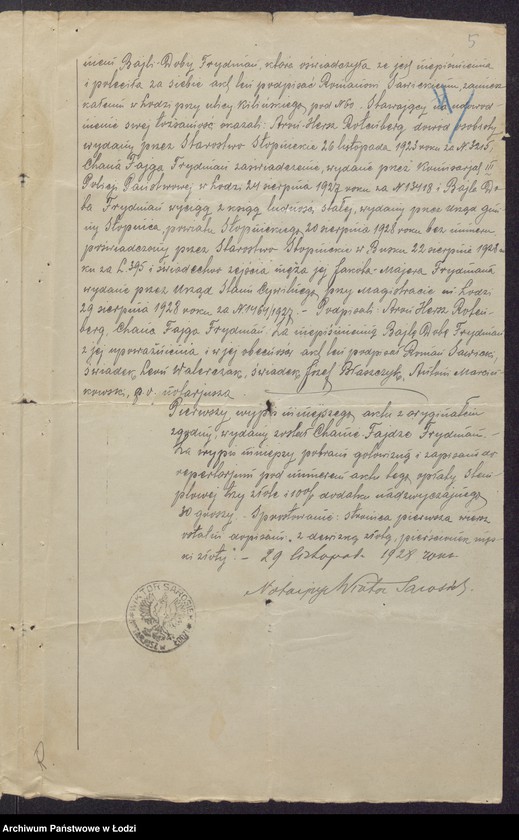 5
nieni Bajli-Doby Frydman, która oświadczyła że jest niepiśmienna
i poleciła za siebie akt ten podpisać Romanowi Sawickiemu, zamiesz-
kałemu w Łodzi przy ulicy Kilińskiego pod N 60. Stawający na udowod-
nienie swej tożsamości okazali: Aron-Hersz Rotenberg, dowód osobisty
wydany przez Starostwo Stopnickie 26 listopada 1923 roku za N 3215,
Chana Fajga Frydman zaświadczenie, wydane przez Komisarjat III
Policji Państwowej w Łodzi 24 sierpnia 1927 roku za N 13418 i Bajla Do-
ba Frydman wyciąg z ksiąg ludności stałej, wydany przez Urząd gmi-
ny Stopnica, powiatu Stopnickiego, 20 sierpnia 1928 roku bez numeru,
poświadczony przez Starostwo Stopnickie w Busku 22 sierpnia 1928 ro-
ku za L. 395 i świadectwo zejścia męża jej Jankla-Majera Frydmana
wydane przez Urząd Stanu Cywilnego przy Magistracie m. Łodzi
29 sierpnia 1928 roku za N 1461/1927. – Podpisali: Aron Hersz Roten-
berg, Chana Fajga Frydman. Za niepiśmienną Bajlę Dobę Frydman
z jej upoważnienia i w jej obecności akt ten podpisał Roman Sawicki,
świadek Leon Walerczak, świadek Józef Błaszczyk, Antoni Marcin-
kowski, p.o. notarjusza
Pierwszy wypis niniejszego aktu z oryginałem
zgodny, wydany został Chanie-Fajdze Frydman. –
Za wypis niniejszy pobrano gotowizną i zapisano do
repertorjum pod numerem aktu tego, opłaty stem-
plowej trzy złote i 10% dodatku nadzwyczajnego
30 groszy. Sprostowanie: stronica pierwsza wiersz
ostatni dopisano: "z dewizką złotą, pierścionek męs-
ki złoty". – 29 listopada 1928 roku
Notarjusz Wiktor Sarosiek.
WIKTOR SAROSIEK
R
Archiwum Państwowe w Łodzi